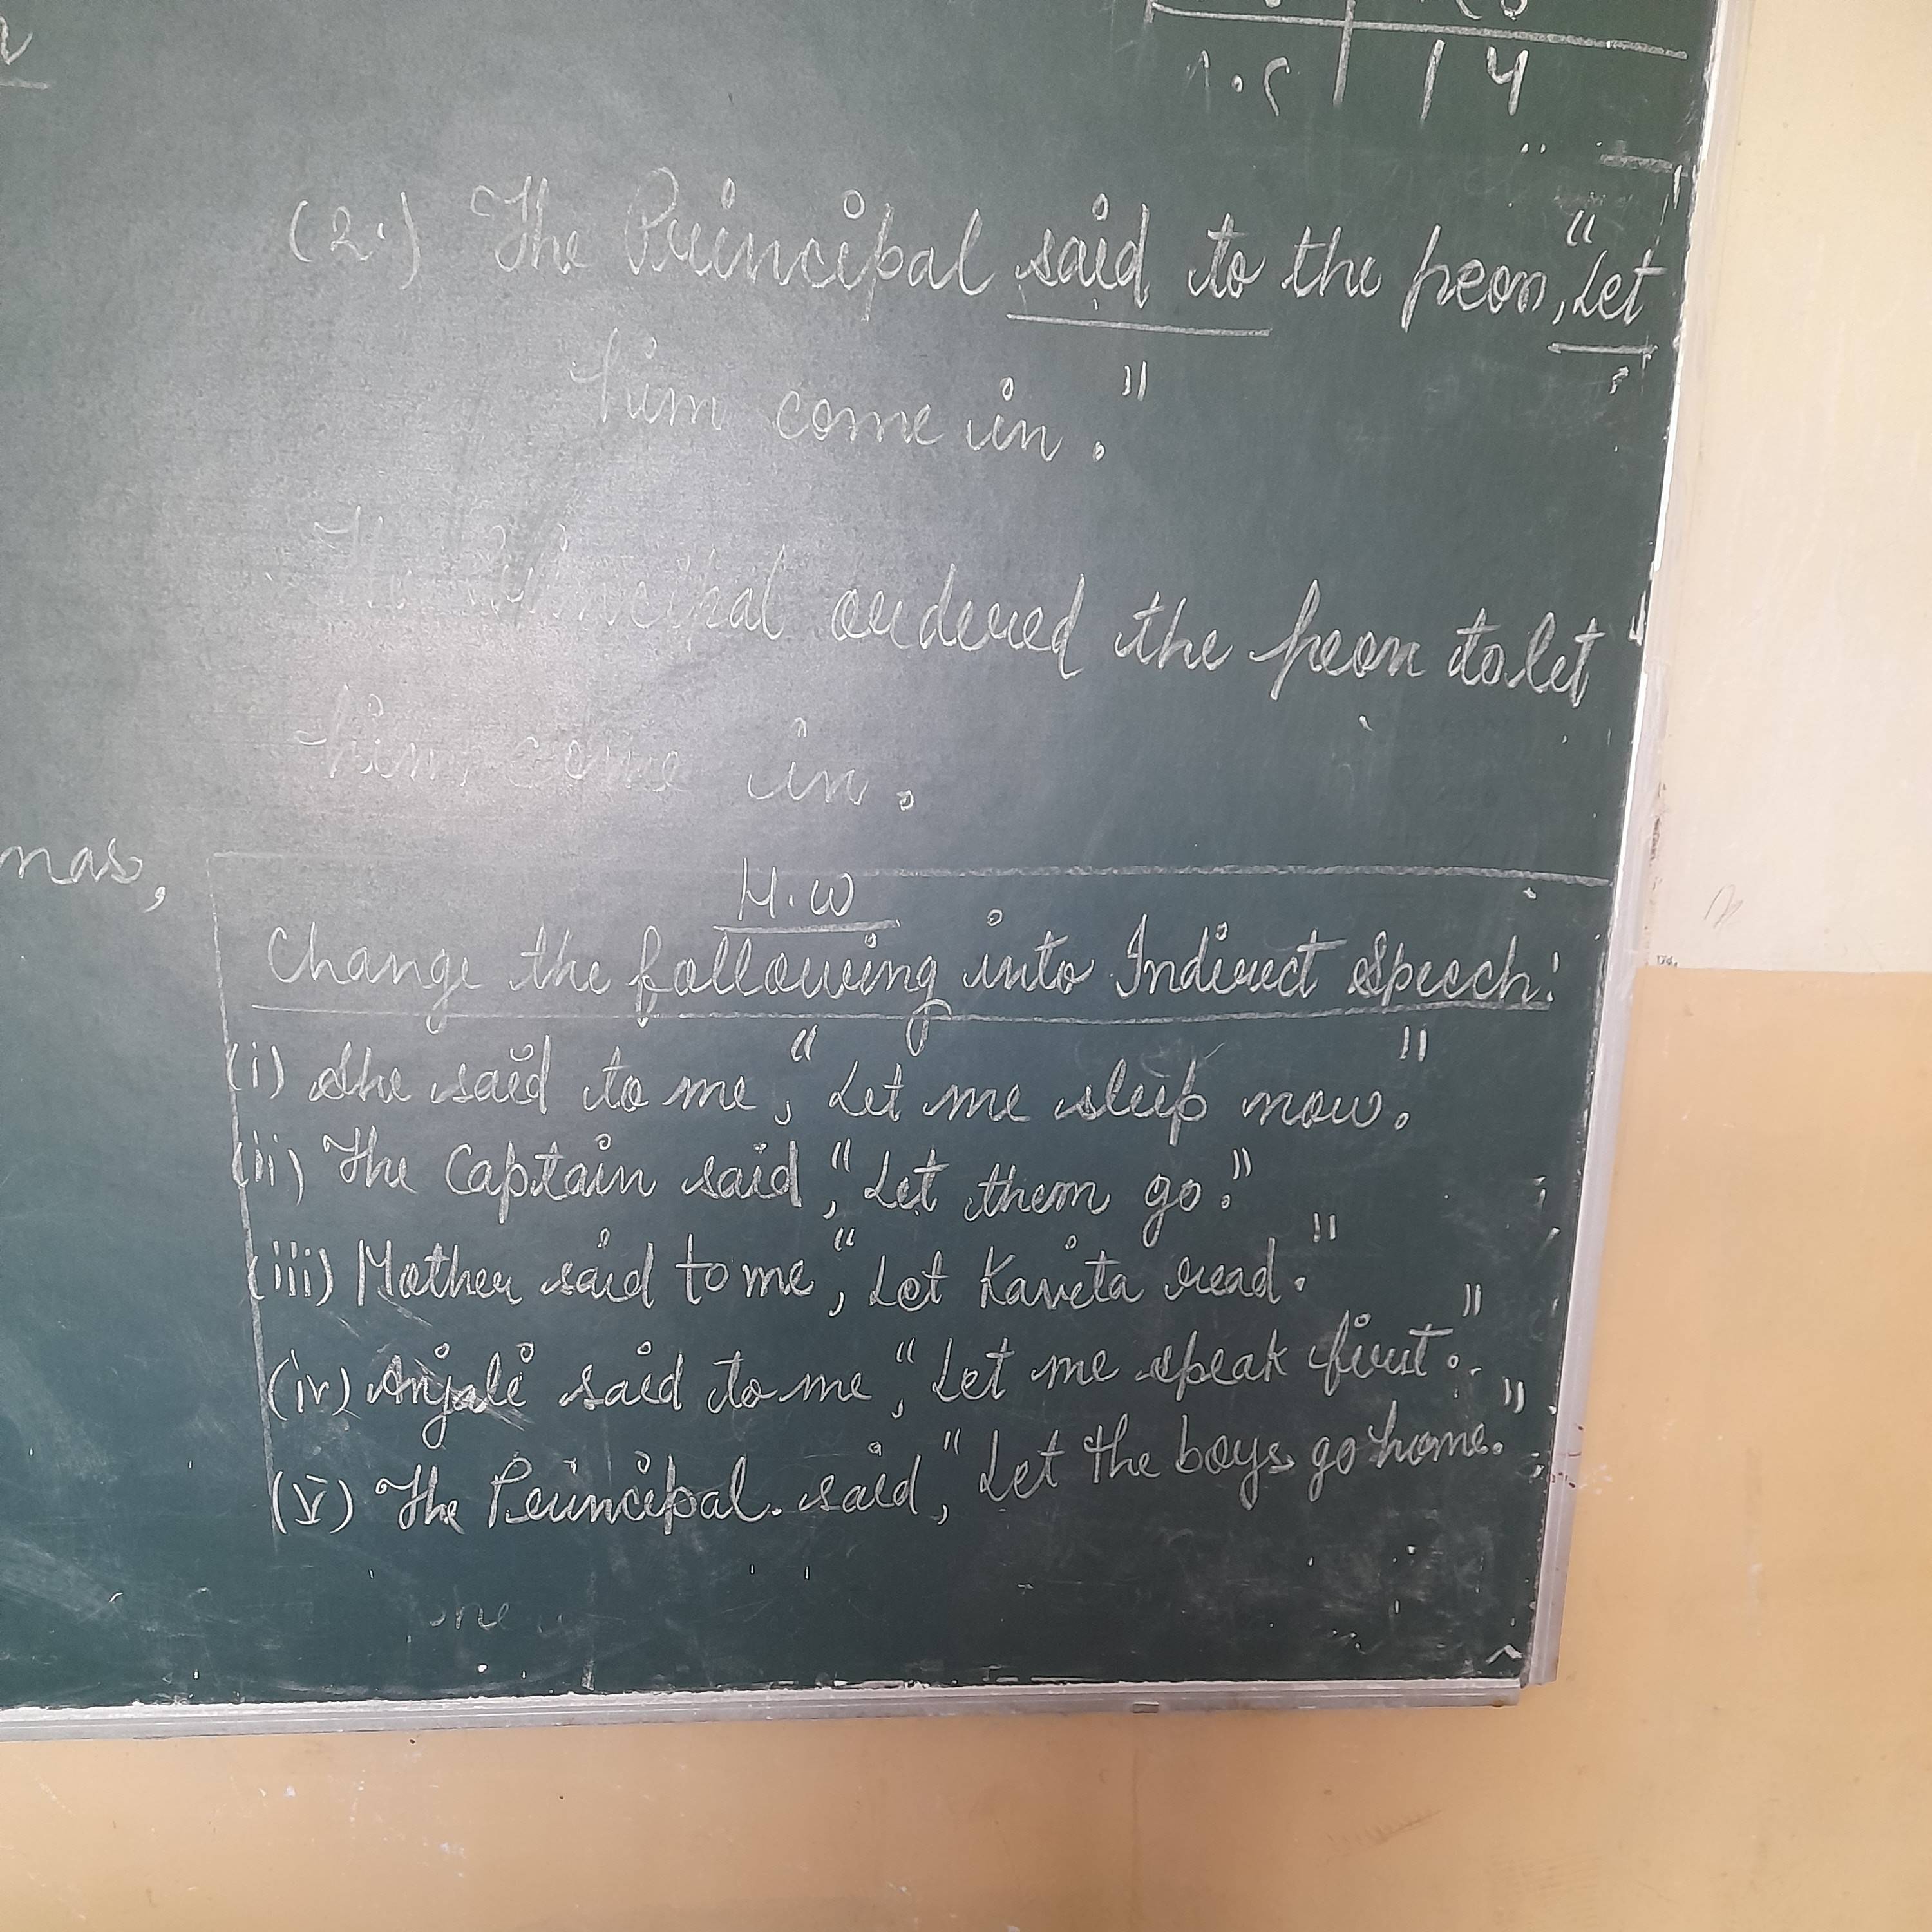 14
(2.) The Principal said to the peon, "Let
him come in."
The Principal ordered the peon to let
him come in.
H.W
Change the following into Indirect Speech:
(i) She said to me, "Let me sleep now."
(ii) The Captain said, "Let them go."
(iii) Mother said to me, "Let Kavita read."
(iv) Anjali said to me, "Let me speak first."
(v) The Principal. said, "Let the boys go home."